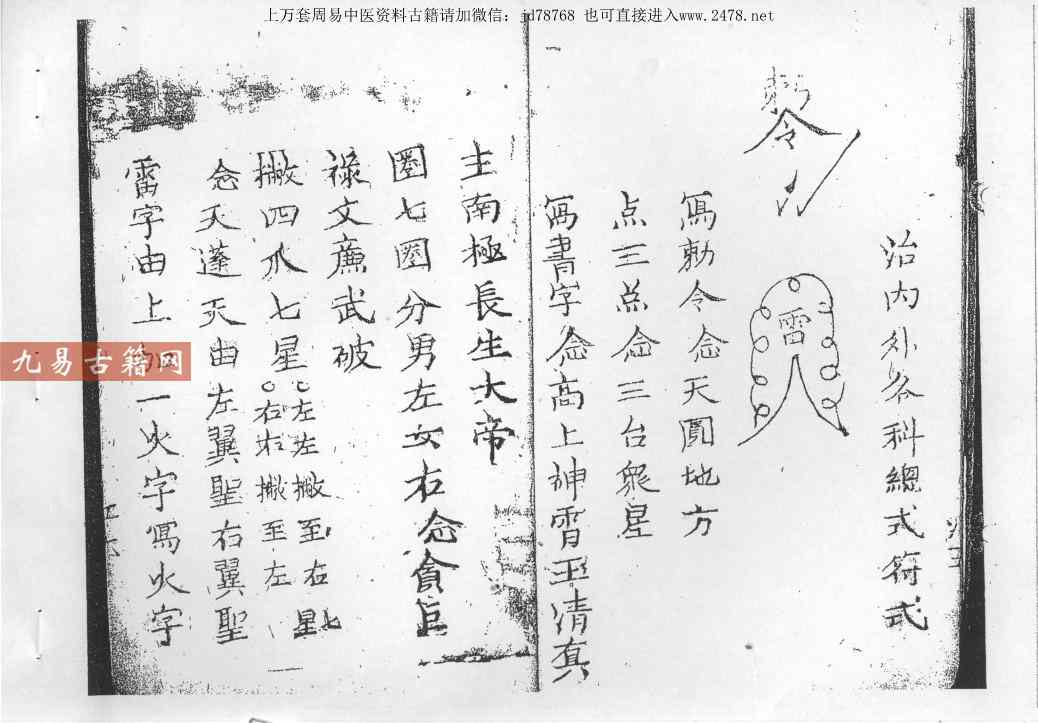 上万套周易中医资料古籍请加微信：jd78768 也可直接进入www.2478.net
治内外各科總式符式
勅令
雷
寫勅令念天圓地方
点三点念三台衆星
寫書字念高上神霄玉清真
主南極長生大帝
圈七圈分男左女右念貪巨
禄文廉武破
撇四爪七星左左撇至右星七
右右撇至左
念天蓬天由左翼聖右翼聖
雷字由上一火字寫火字
九易古籍网